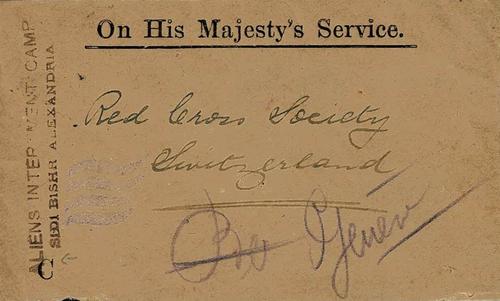 On His Majesty's Service.
ALIENS INTERNMENT CAMP
SIDI BISHR ALEXANDRIA
C
Red Cross Society
Switzerland
Genev